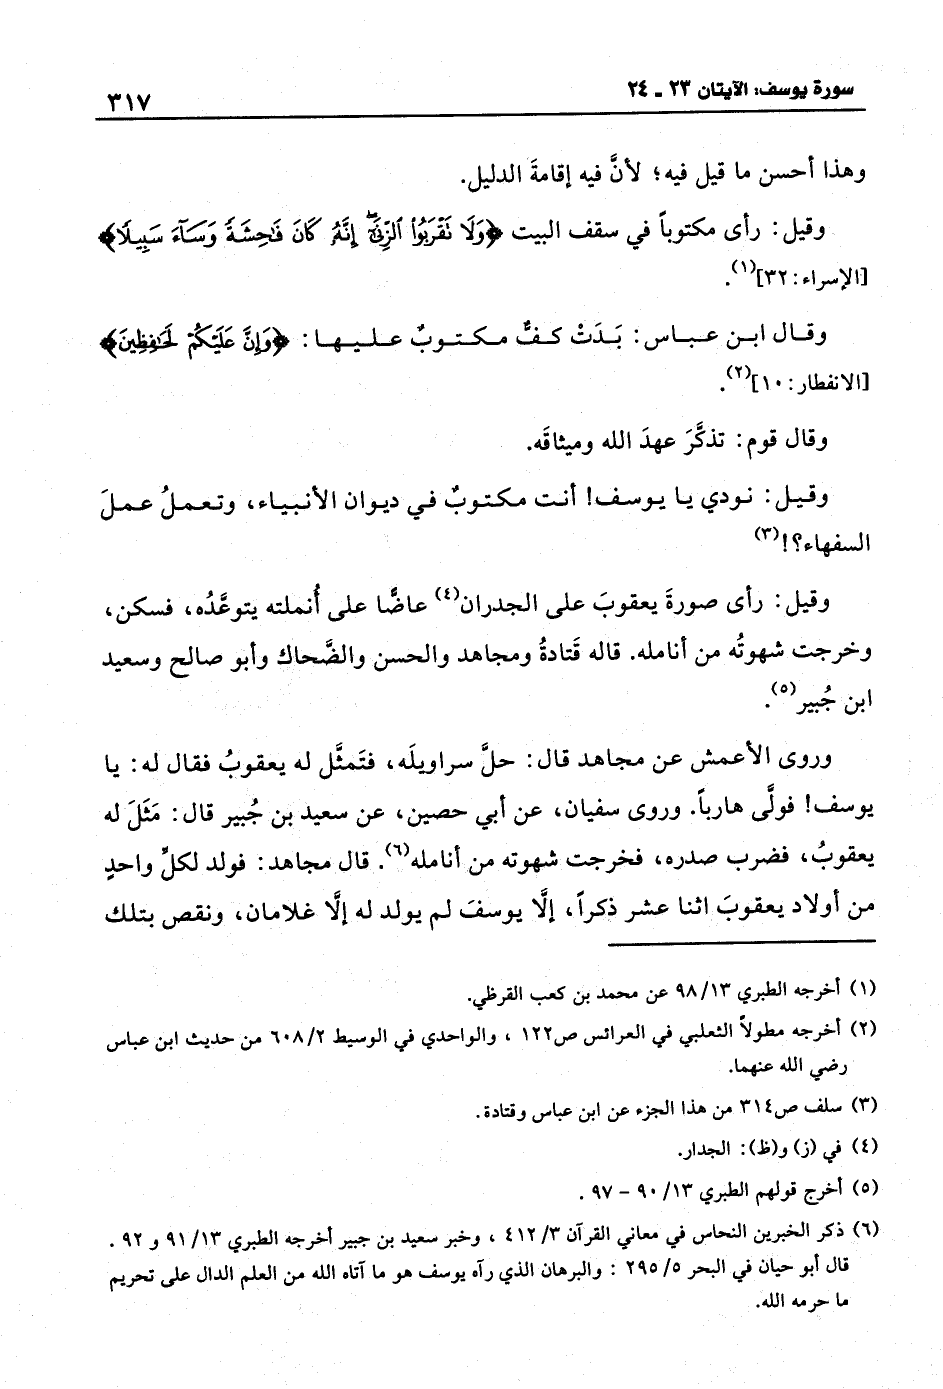 سورة يوسف: الآيتان ٢٣ ـ ٢٤
٣١٧
وهذا أحسن ما قيل فيه؛ لأنَّ فيه إقامةَ الدليل.
وقيل: رأى مكتوباً في سقف البيت ﴿وَلَا نَقْرَبُوا۟ ٱلزِّنَىٰٓۖ إِنَّهُۥ كَانَ فَٰحِشَةً وَسَآءَ سَبِيلًا﴾
[الإسراء: ٣٢](١).
وقال ابن عباس: بَدَتْ كفٌّ مكتوبٌ عليها: ﴿وَإِنَّ عَلَيْكُمْ لَحَٰفِظِينَ﴾
[الانفطار: ١٠](٢).
وقال قوم: تذكَّرَ عهدَ الله وميثاقَه.
وقيل: نودي يا يوسف! أنت مكتوبٌ في ديوان الأنبياء، وتعملُ عملَ
السفهاء؟!(٣)
وقيل: رأى صورةَ يعقوبَ على الجدران(٤) عاضًّا على أُنملته يتوعَّدُه، فسكن،
وخرجت شهوتُه من أنامله. قاله قَتادةُ ومجاهد والحسن والضَّحاك وأبو صالح وسعيد
ابن جُبير(٥).
وروى الأعمش عن مجاهد قال: حلَّ سراويلَه، فتَمثَّل له يعقوبُ فقال له: يا
يوسف! فولَّى هارباً. وروى سفيان، عن أبي حصين، عن سعيد بن جُبير قال: مَثَلَ له
يعقوبُ، فضرب صدره، فخرجت شهوته من أنامله(٦). قال مجاهد: فولد لكلِّ واحدٍ
من أولاد يعقوبَ اثنا عشر ذكراً، إلَّا يوسفَ لم يولد له إلَّا غلامان، ونقص بتلك
(١) أخرجه الطبري ١٣/ ٩٨ عن محمد بن كعب القرظي.
(٢) أخرجه مطولاً الثعلبي في العرائس ص١٢٢ ، والواحدي في الوسيط ٢/ ٦٠٨ من حديث ابن عباس
رضي الله عنهما.
(٣) سلف ص٣١٤ من هذا الجزء عن ابن عباس وقتادة.
(٤) في (ز) و(ظ): الجدار.
(٥) أخرج قولهم الطبري ١٣/ ٩٠ - ٩٧ .
(٦) ذكر الخبرين النحاس في معاني القرآن ٣/ ٤١٢ ، وخبر سعيد بن جبير أخرجه الطبري ١٣/ ٩١ و ٩٢ .
قال أبو حيان في البحر ٥/ ٢٩٥ : والبرهان الذي رآه يوسف هو ما آتاه الله من العلم الدال على تحريم
ما حرمه الله.